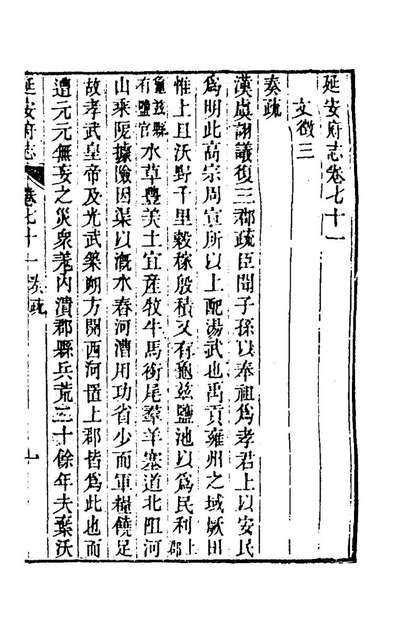 延安府志卷七十一
文徵三
奏疏
漢虞詡議復三郡疏臣聞子孫以奉祖爲孝君上以安民
爲明此高宗周宣所以上配湯武也禹貢雍州之域厥田
惟上且沃野千里穀稼殷積又有龜茲鹽池以爲民利上郡
龜茲縣有鹽官水草豊美土宜產牧牛馬銜尾羣羊塞道北阻河
山乘阨據險因渠以漑水舂河漕用功省少而軍糧饒足
故孝武皇帝及光武築朔方開西河置上郡皆爲此也而
遭元元無妄之災衆羌内潰郡縣兵荒二十餘年夫棄沃
延安府志
卷七十一 奏疏
一